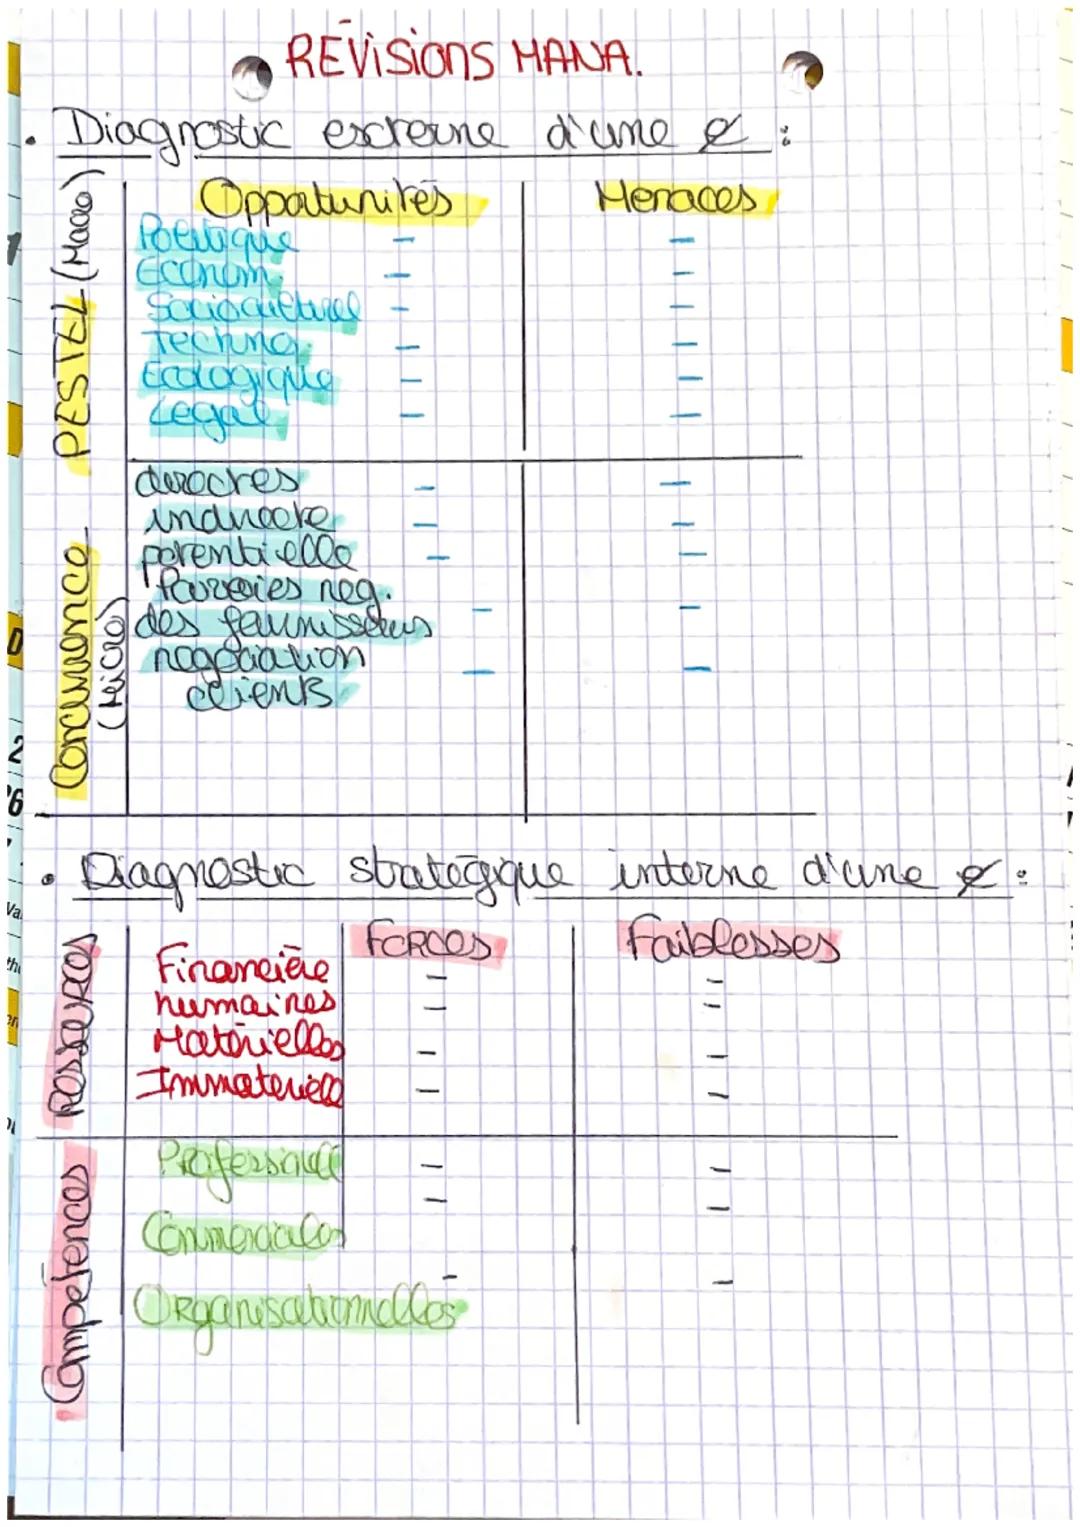 REVISIONS MANA.
• Diagnostic externe d'une e :
PESTEL (Macro)
Opportunités Menaces
Politique - -
Econom. - -
Socioculturel - -
Techno. - -
Ecologique - -
Legal - -
Concurrence (Micro)
directes - -
indirecte - -
potentielle - -
neg.
des fournisseurs - -
negociation - -
clients
• Diagnostic stratégique interne d'une e :
Ressources
Forces Faiblesses
Financière - -
humaines - -
Matérielles - -
Immateriell - -
Compétences
Professionell - -
Commerciales - -
Organisationnelles - -